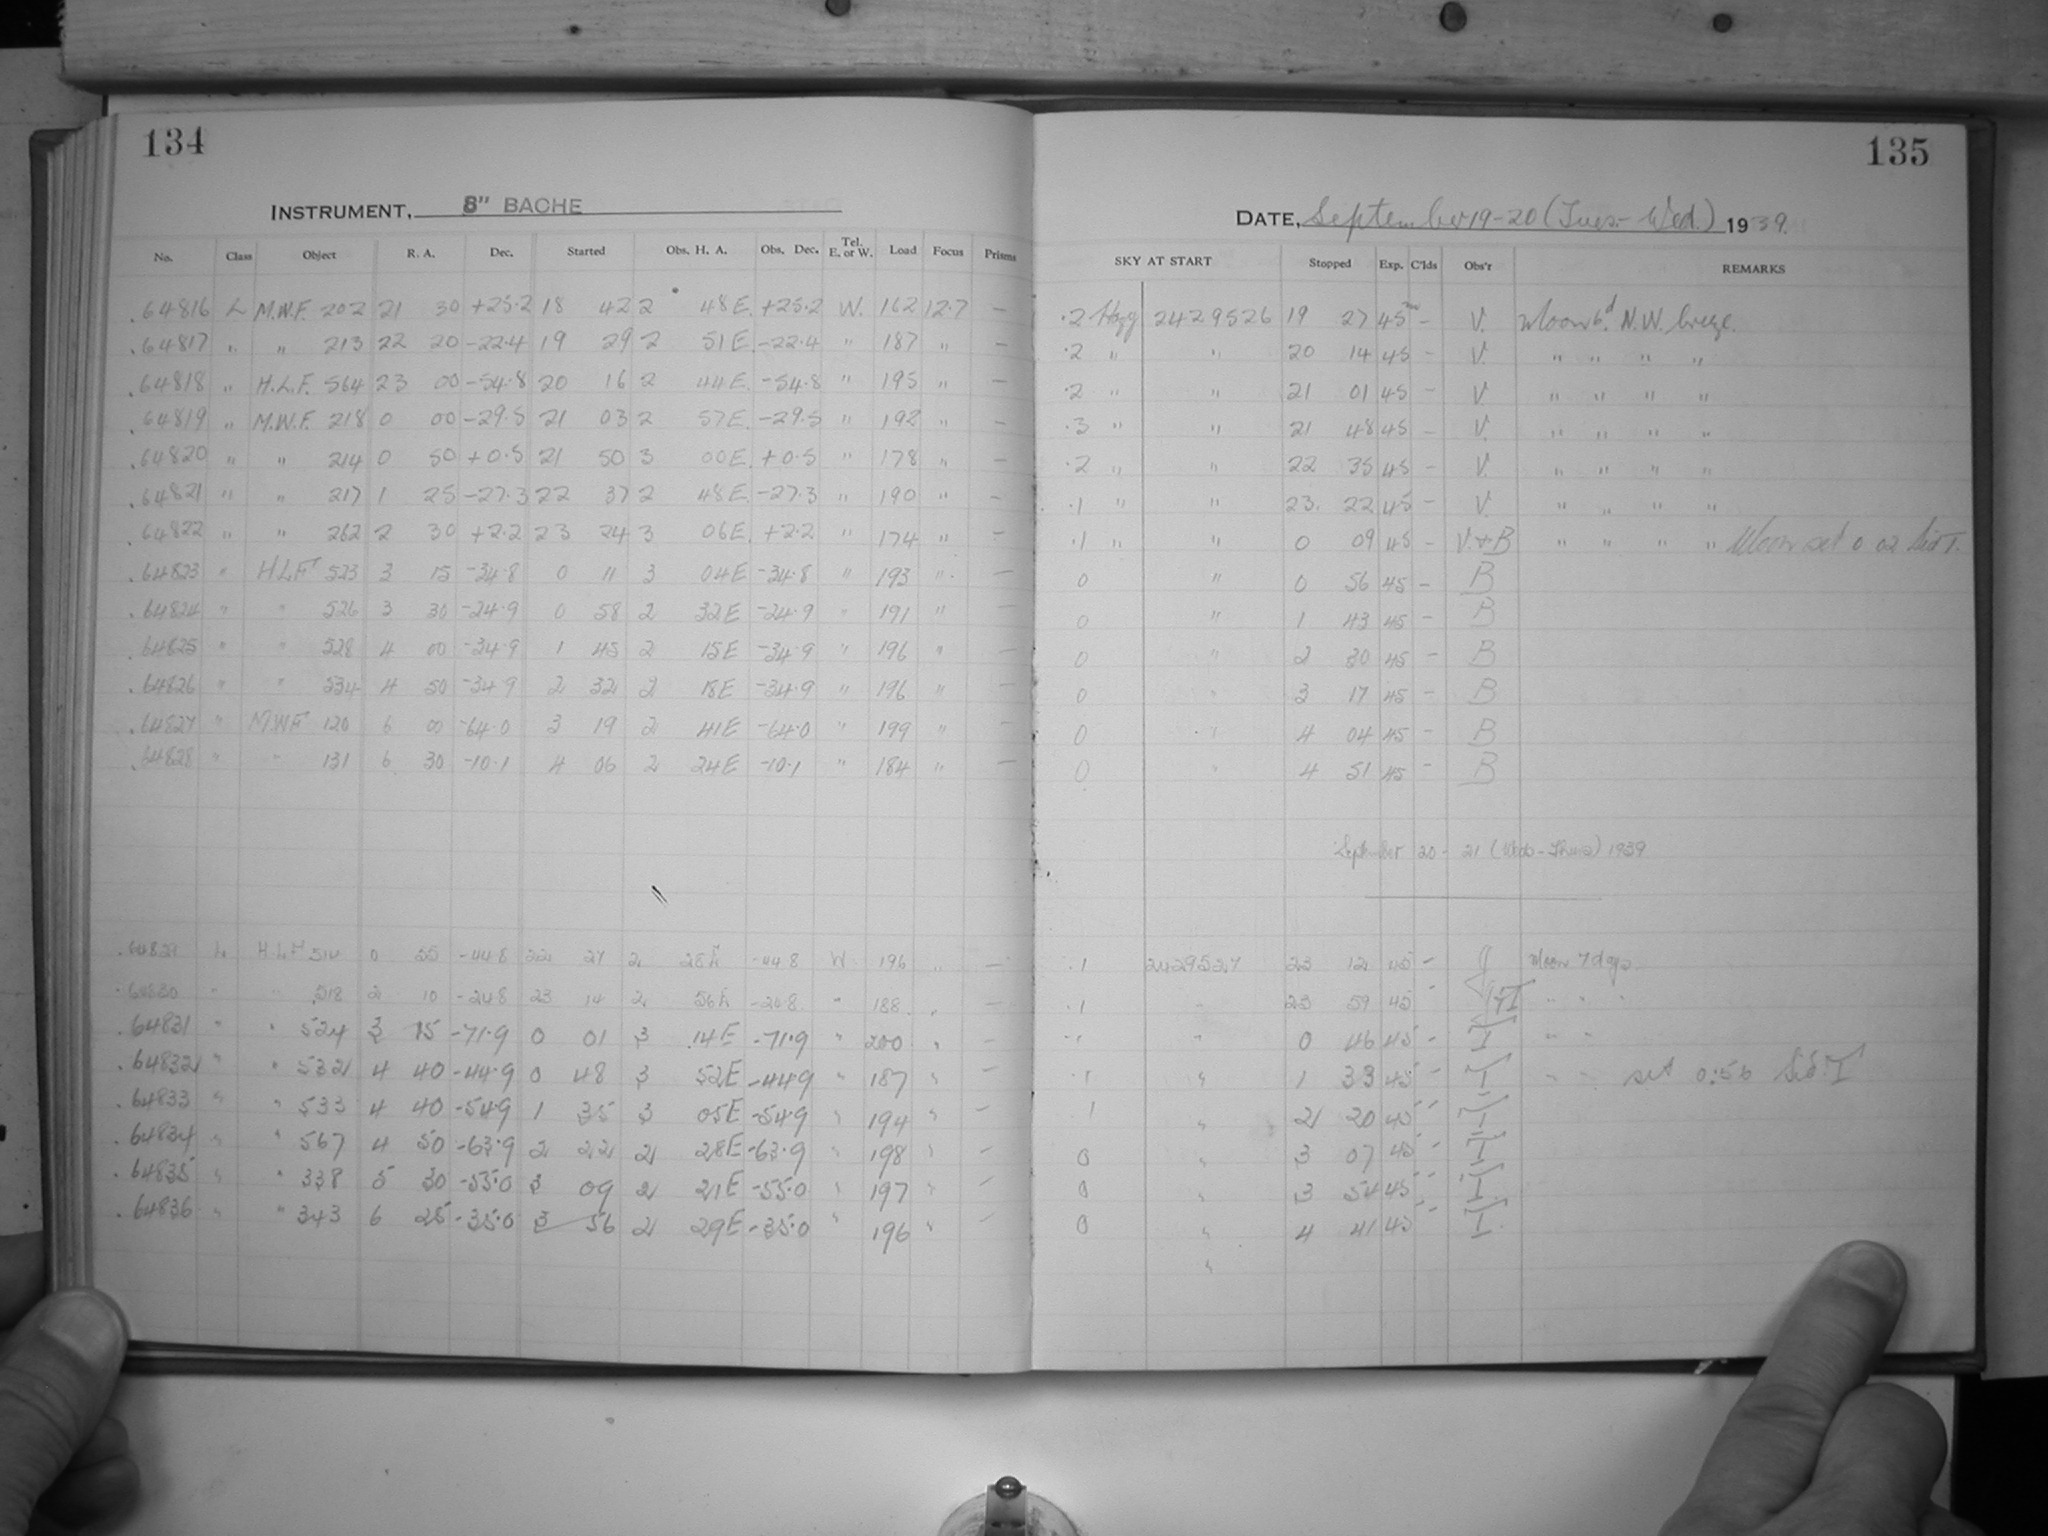 134
INSTRUMENT, 8" BACHE
No. Class Object R. A. Dec. Started Obs. H. A. Obs. Dec. Tel. E. or W. Load Focus Prisms
.64816 L M.W.F. 202 21 30 +25.2 18 42 2 48E. +25.2 W. 162 12.7 —
.64817 " " 213 22 20 -22.4 19 29 2 51E. -22.4 " 187 " —
.64818 " H.L.F. 564 23 00 -54.8 20 16 2 44E. -54.8 " 195 " —
.64819 " M.W.F. 218 0 00 -29.5 21 03 2 57E. -29.5 " 192 " —
.64820 " " 214 0 50 +0.5 21 50 3 00E. +0.5 " 178 " —
.64821 " " 217 1 25 -27.3 22 37 2 48E. -27.3 " 190 " —
.64822 " " 262 2 30 +2.2 23 24 3 06E. +2.2 " 174 " —
.64823 " HLF 523 3 15 -34.8 0 11 3 04E -34.8 " 193 " —
.64824 " " 526 3 30 -24.9 0 58 2 32E -24.9 " 191 " —
.64825 " " 528 4 00 -34.9 1 45 2 15E -34.9 " 196 " —
.64826 " " 534 4 50 -34.9 2 32 2 18E -34.9 " 196 " —
.64827 " MWF 120 6 00 -64.0 3 19 2 41E -64.0 " 199 " —
.64828 " " 131 6 30 -10.1 4 06 2 24E -10.1 " 184 " —
.64829 L HLF 0 55 -44.8 22 27 2 28E -44.8 W 196 " —
.64830 " " 518 2 10 -24.8 23 14 2 56E -24.8 " 188 " —
.64831 " " 524 3 15 -71.9 0 01 3 14E -71.9 " 200 " —
.64832 " " 532 4 40 -44.9 0 48 3 52E -44.9 " 187 " —
.64833 " " 533 4 40 -54.9 1 35 3 05E -54.9 " 194 " —
.64834 " " 567 4 50 -63.9 2 22 2 28E -63.9 " 198 " —
.64835 " " 338 5 30 -55.0 3 09 2 21E -55.0 " 197 " —
.64836 " " 343 6 25 -35.0 3 56 2 29E -35.0 " 196 "
135
DATE, September 19-20 (Tues.-Wed.) 1939.
SKY AT START Stopped Exp. C'lds Obs'r REMARKS
.2 Hazy 2429526 19 27 45m — V. Moon 6d. N.W. breeze.
.2 " " 20 14 45 — V. " " " "
.2 " " 21 01 45 — V. " " " "
.3 " " 21 48 45 — V. " " " "
.2 " " 22 35 45 — V. " " " "
.1 " " 23. 22 45 — V. " " " "
.1 " " 0 09 45 — V.+B " " " " Moon set 0 02 Sid T.
0 " 0 56 45 — B
0 " 1 43 45 — B
0 " 2 30 45 — B
0 " 3 17 45 — B
0 " 4 04 45 — B
0 " 4 51 45 — B
September 20-21 (Wed-Thurs) 1939
.1 2429527 23 12 45 — Moon 7 days
.1 " 23 59 45 " " "
.1 " 0 46 45 — " "
.1 " 1 33 45 — " " set 0:56 Sid T
.1 " 2 20 45
0 " 3 07 45
0 " 3 54 45
0 " 4 41 45
"